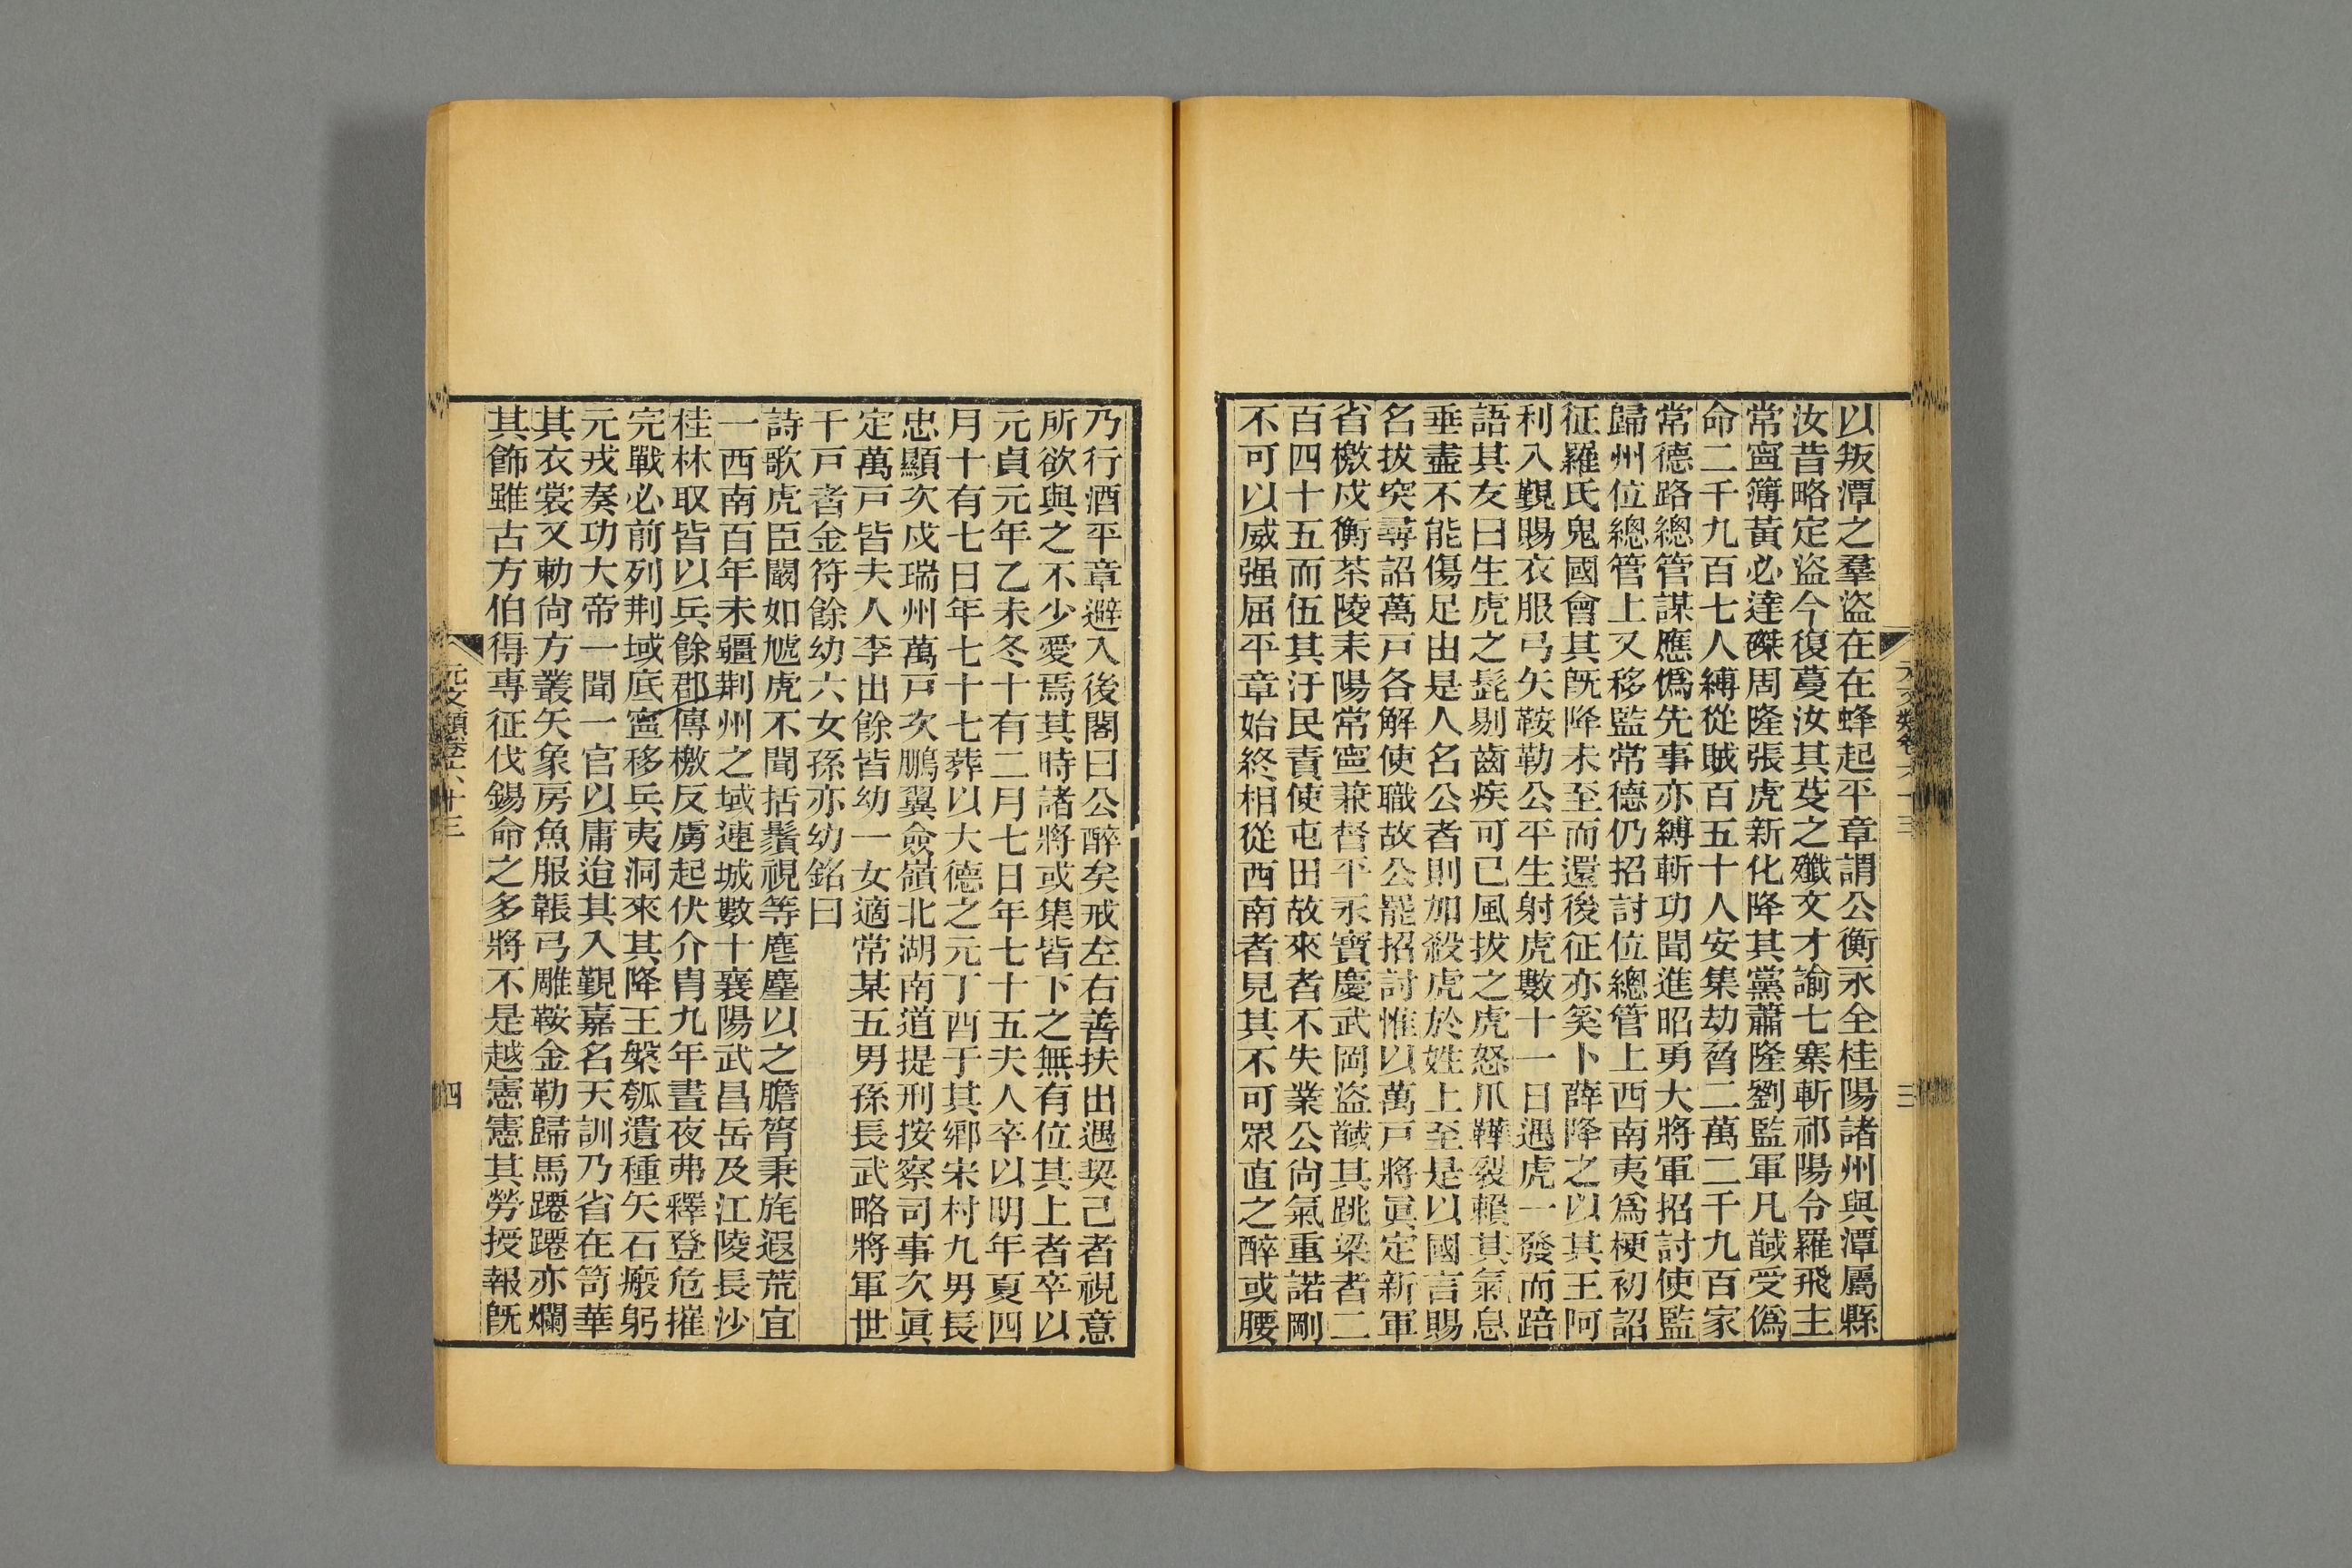 以叛潭之羣盜在在蜂起平章謂公衡永全桂陽諸州與潭屬縣
汝昔略定盜今復蔓汝其芟之殲文才諭七寨斬祁陽令羅飛主
常寧簿黃必達磔周隆張虎新化降其黨蕭隆劉監軍凡馘受僞
命二千九百七人縛從賊百五十人安集劫脅二萬二千九百家
常德路總管謀應僞先事亦縛斬功聞進昭勇大將軍招討使監
歸州位總管上又移監常德仍招討位總管上西南夷爲梗初詔
征羅氏鬼國會其旣降未至而還後征亦奚卜薛降之以其王阿
利入覲賜衣服弓矢鞍勒公平生射虎數十一日遇虎一發而踣
語其友曰生虎之髭剔齒疾可已風拔之虎怒爪鞾裂賴其氣息
垂盡不能傷足由是人名公者則加殺虎於姓上至是以國言賜
名拔突尋詔萬戸各解使職故公罷招討惟以萬戸將眞定新軍
省檄戍衡茶陵耒陽常寧兼督平永寶慶武岡盜馘其跳梁者二
百四十五而伍其汙民責使屯田故來者不失業公尙氣重諾剛
不可以威强屈平章始終相從西南者見其不可眾直之醉或腰
元文類卷六十三
三
乃行酒平章避入後閣曰公醉矣戒左右善扶出遇契己者視意
所欲與之不少愛焉其時諸將或集皆下之無有位其上者卒以
元貞元年乙未冬十有二月七日年七十五夫人卒以明年夏四
月十有七日年七十七葬以大德之元丁酉于其鄉宋村九男長
忠顯次戍瑞州萬戸次鵬翼僉嶺北湖南道提刑按察司事次眞
定萬戸皆夫人李出餘皆幼一女適常某五男孫長武略將軍世
千戸者金符餘幼六女孫亦幼銘曰
詩歌虎臣闞如虓虎不聞括鬚視等麀麈以之膽膂秉旄遐荒宜
一西南百年未疆荆州之域連城數十襄陽武昌岳及江陵長沙
桂林取皆以兵餘郡傳檄反虜起伏介胄九年晝夜弗釋登危摧
完戰必前列荆域底寧移兵夷洞來其降王槃瓠遺種矢石瘢躬
元戎奏功大帝一聞一官以庸迨其入覲嘉名天訓乃省在笥華
其衣裳又勅尙方叢矢象房魚服韔弓雕鞍金勒歸馬蹮蹮亦爛
其飾雖古方伯得専征伐錫命之多將不是越憲憲其勞授報旣
元文類卷六十三
四